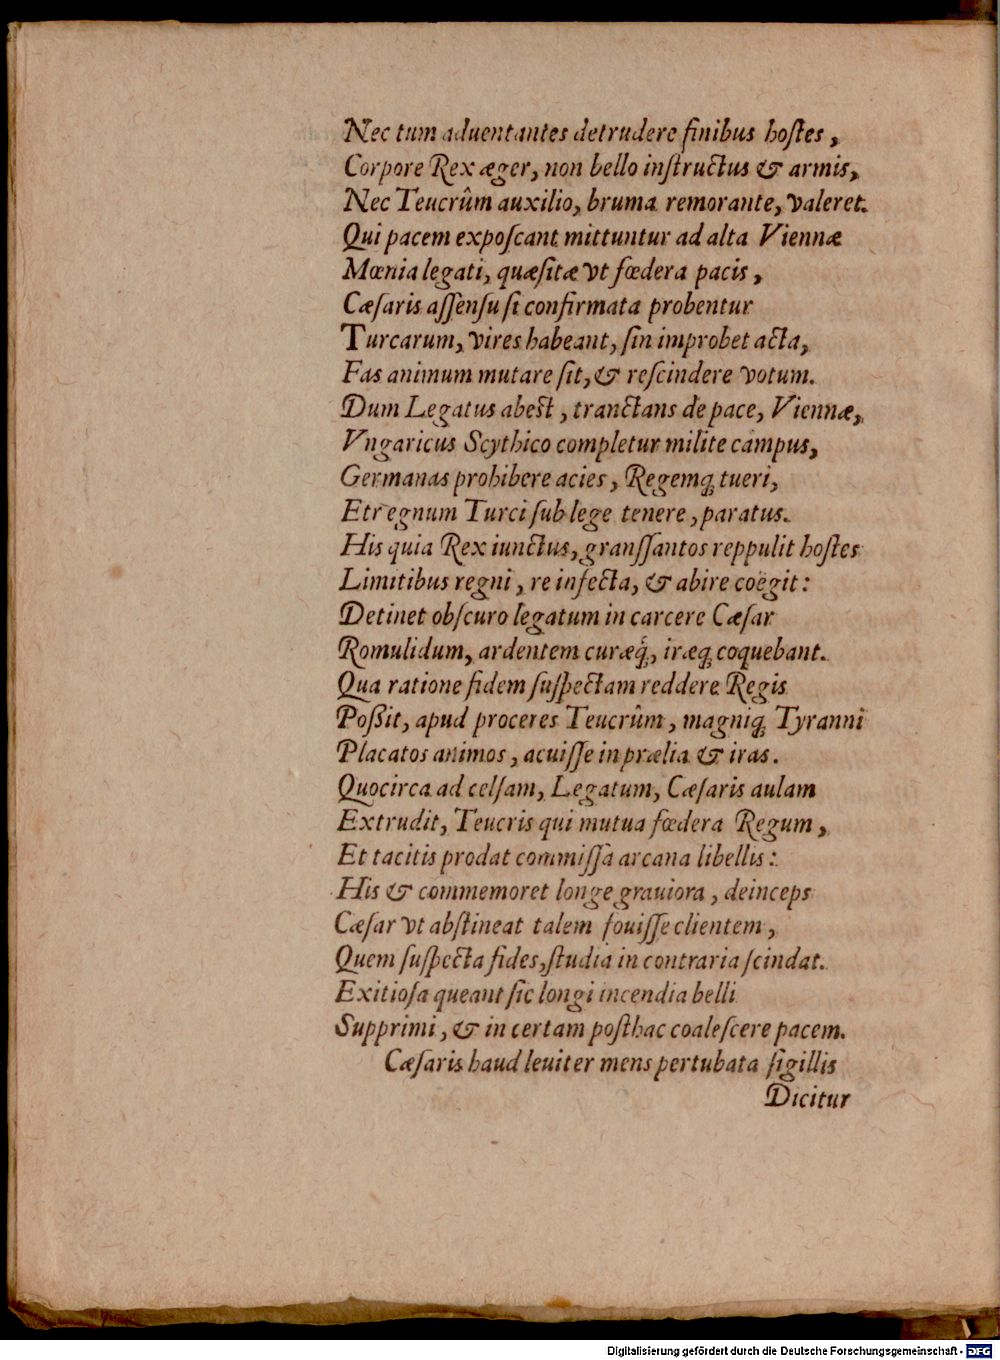 Nec tum aduentantes detrudere finibus hoſtes,
Corpore Rex æger, non bello inſtructus & armis,
Nec Teucrûm auxilio, bruma remorante, valeret.
Qui pacem expoſcant mittuntur ad alta Viennæ
Mœnia legati, quæſitæ vt fœdera pacis,
Cæſaris aſſenſu ſi confirmata probentur
Turcarum, vires habeant, ſin improbet acta,
Fas animum mutare ſit, & reſcindere votum.
Dum Legatus abeſt, tranctans de pace, Viennæ,
Vngaricus Scythico completur milite campus,
Germanas prohibere acies, Regemq́; tueri,
Etregnum Turci ſub lege tenere, paratus.
His quia Rex iunctus, granſſantos reppulit hoſtes
Limitibus regni, re infecta, & abire coëgit:
Detinet obſcuro legatum in carcere Cæſar
Romulidum, ardentem curæq́;, iræq; coquebant.
Qua ratione fidem ſuſpectam reddere Regis
Poßit, apud proceres Teucrûm, magniq; Tyranni
Placatos animos, acuiſſe in prælia & iras.
Quocirca ad celſam, Legatum, Cæſaris aulam
Extrudit, Teucris qui mutua fœdera Regum,
Et tacitis prodat commiſſa arcana libellis:
His & commemoret longe grauiora, deinceps
Cæſar vt abſtineat talem fouiſſe clientem,
Quem ſuſpecta fides, ſtudia in contraria ſcindat.
Exitioſa queant ſic longi incendia belli
Supprimi, & in certam poſthac coaleſcere pacem.
Cæſaris haud leuiter mens pertubata ſigillis
Dicitur
Digitalisierung gefördert durch die Deutsche Forschungsgemeinschaft - DFG